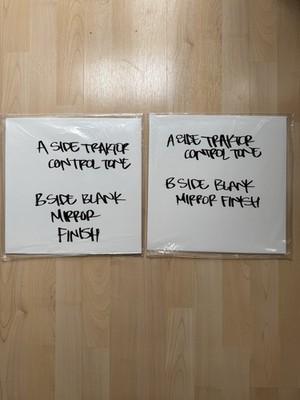 A SIDE TRAKTOR
CONTROL TONE
B SIDE BLANK
MIRROR
FINISH
A SIDE TRAKTOR
CONTROL TONE
B SIDE BLANK
MIRROR FINISH